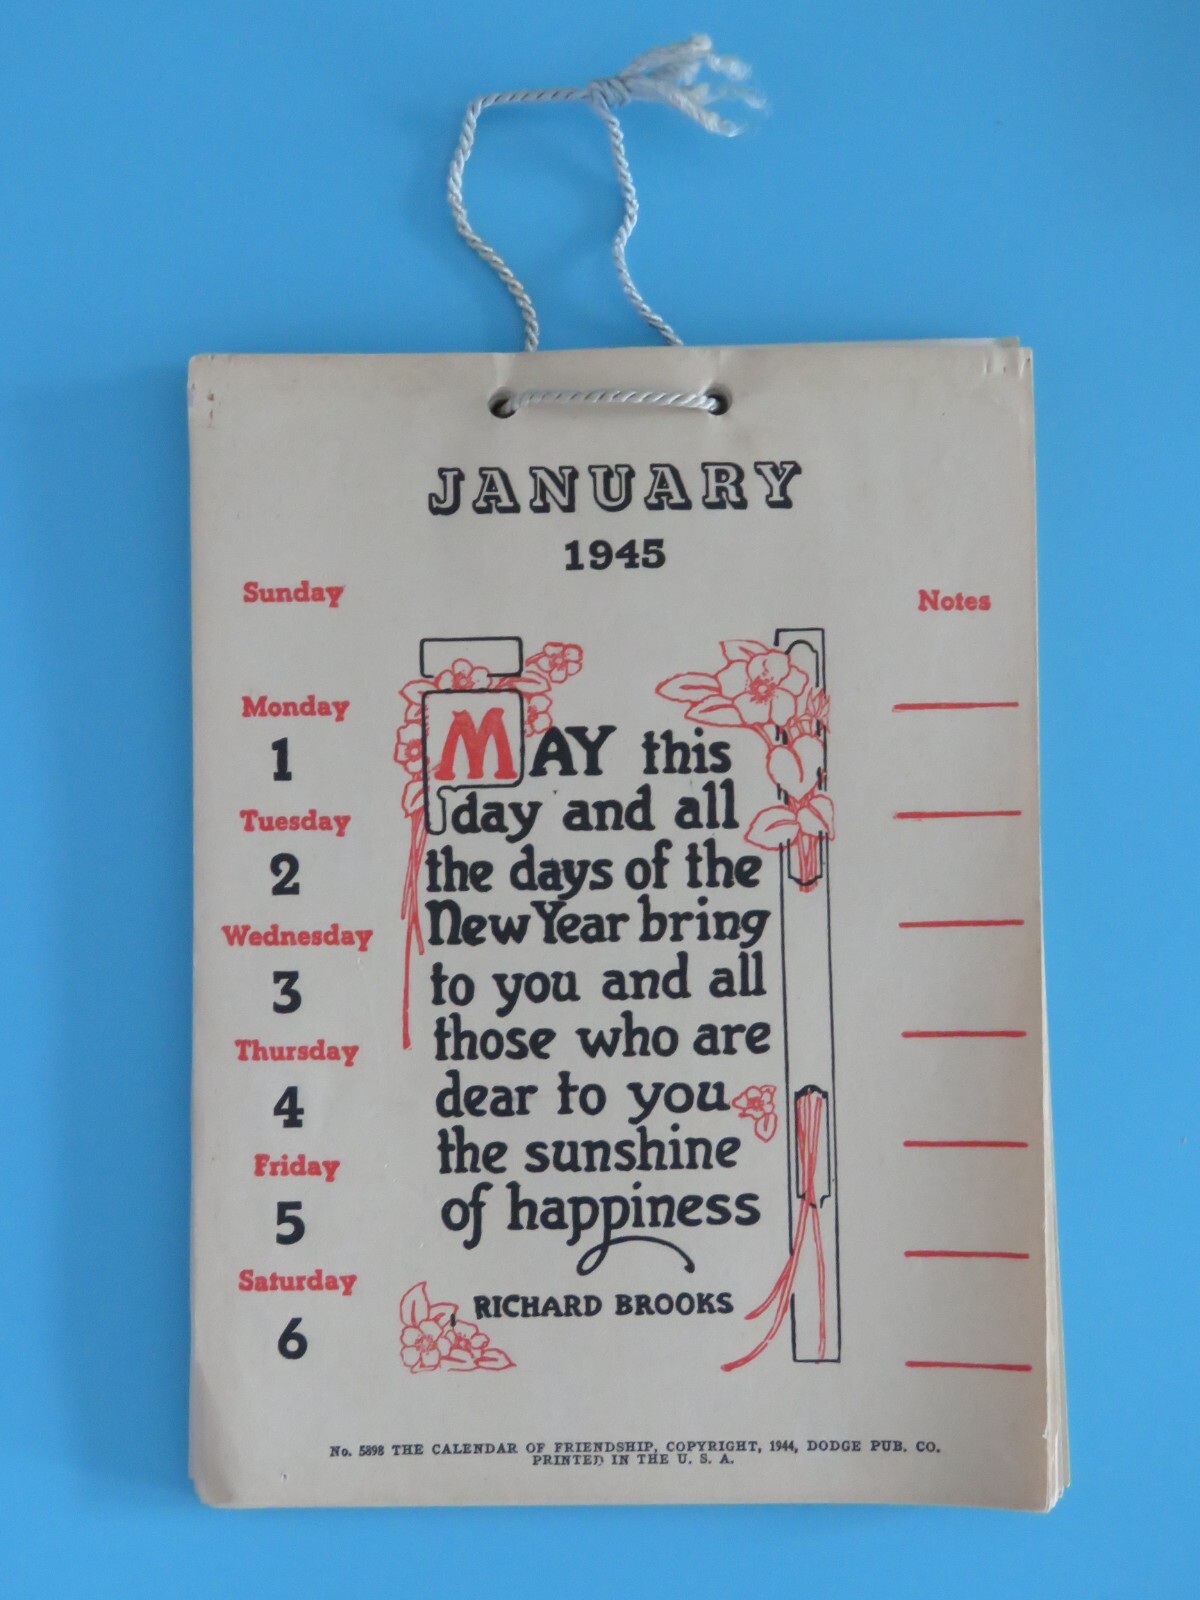 JANUARY
1945
Sunday
Monday
1
Tuesday
2
Wednesday
3
Thursday
4
Friday
5
Saturday
6
MAY this
day and all
the days of the
New Year bring
to you and all
those who are
dear to you
the sunshine
of happiness
RICHARD BROOKS
Notes
No. 5898 THE CALENDAR OF FRIENDSHIP, COPYRIGHT, 1944, DODGE PUB. CO.
PRINTED IN THE U. S. A.